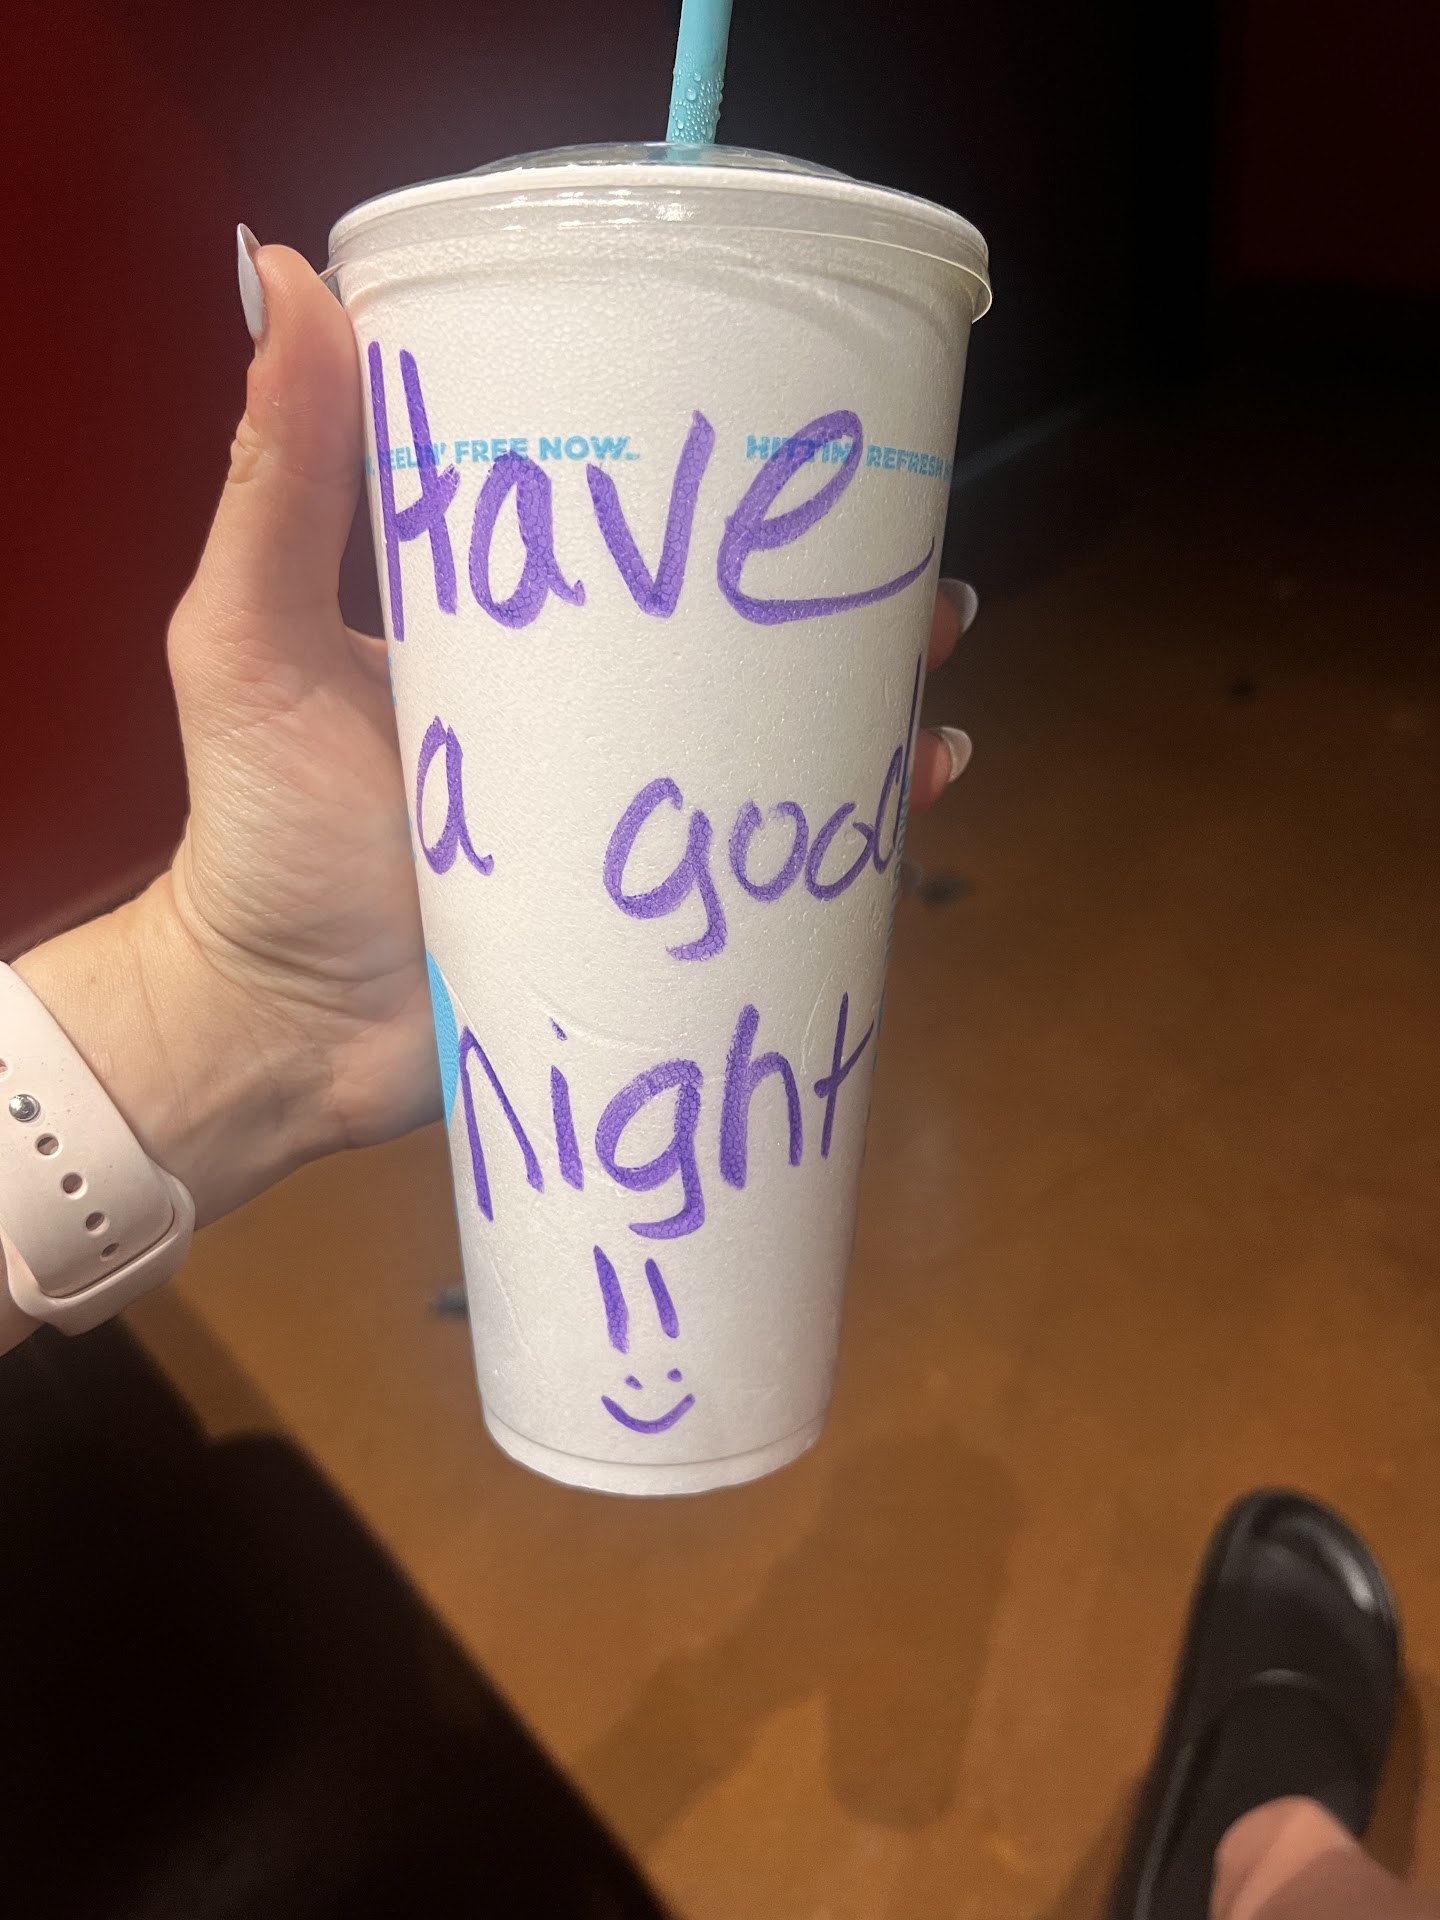 FREE NOW. HITTIN' REFRESH
Have
a good
night
!!